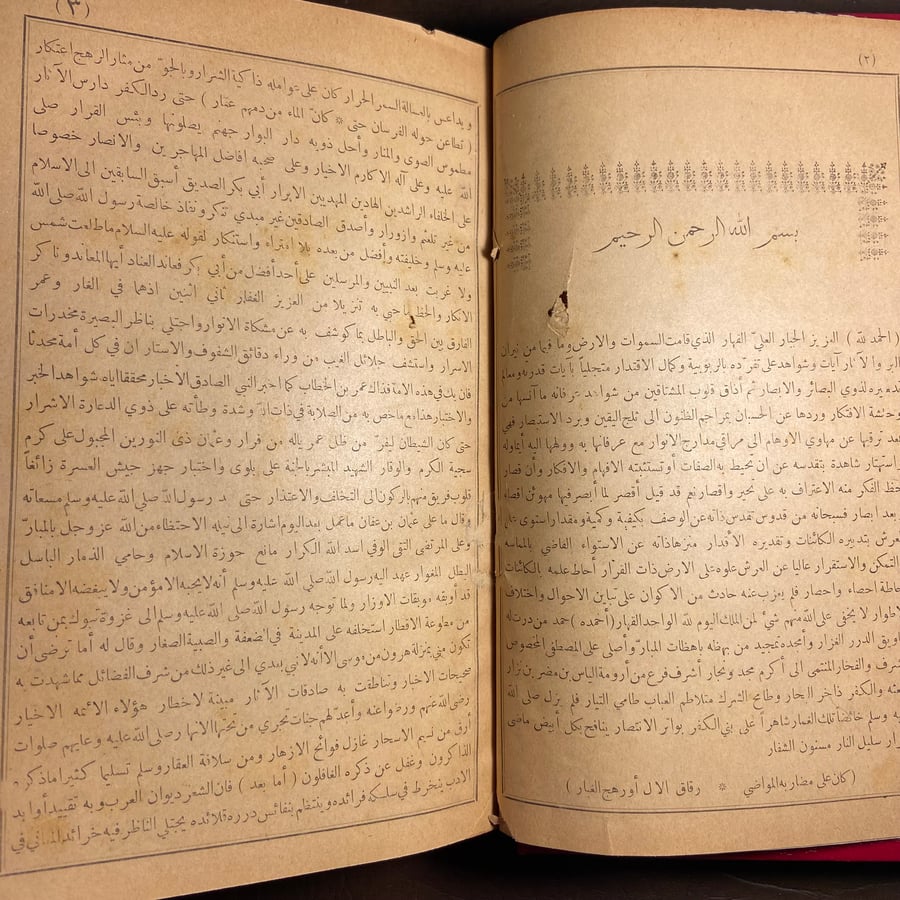 (٢)
بسم الله الرحمن الرحيم
(الحمد لله) العزيز الجبار العلي القهار الذي قامت السموات والارض وما فيها من نيران
آيات وشواهد على تفرده بالربوبية وكمال الاقتدار متجلياً بآيات قدرته
لذوي البصائر والابصار ثم أذاق قلوب المشتاقين من عرفانه ما آنسها من
وحشة الافكار وردها عن الحسبان بمراجم الظنون الى ثلج اليقين وبرد الاستبصار فهي
بعد ترقيها عن مهاوي الاوهام الى مراقي مدارج الانوار مع عرفانها به وولهها اليه
واستهتار شاهدة بتقدسه عن ان تحيط به الصفات أو تستثبته الافهام والافكار وأن قصار
حظ الفكر منه الاعتراف به على تحير واقصار نعم قد قيل أقصر لما أبصر فيها
بعد ابصار فسبحانه من قدوس تقدس ذاته عن الوصف بكيفية وكمية ومقدار استوى على
العرش بتدبيره الكائنات وتقديره الاقدار منزهاً ذاته عن الاستواء القاضي بالمماسة
التمكن والاستقرار عاليا عن العرش علوه على الارض ذات القرار أحاط علمه بالكائنات
احاطة احصاء واحصار فلم يعزب عنه حادث من الاكوان على تباين الاحوال واختلاف
الاطوار لا يخفى على الله منهم شئ لمن الملك اليوم لله الواحد القهار (أحمده) حمد من درت له
الدرر الغزار وأمجده تمجيد من بهظته باهظات المبار وأصلي على المصطفى المخصوص
بشرف والفخار المنتمي الى أكرم مجد ونجار أشرف فرع من أرومة الياس بن مضر بن نزار
بعثه والكفر ذاخر البحار وطامح الشرك متلاطم العباب طامي التيار فلم يزل صلى الله
عليه وسلم خائضاً تلك الغمار شاهراً على بني الكفر بواتر الانتصار ينافح بكل أبيض ماضي
سليل النار مسنون الشفار
(كان على مضاربه المواضي * رقاق الآل أو رهج الغبار)
(٣)
ويداعس بالعسالة السمر الحرار كان على عوامله ذاكية الشرار وبالجو من مثار الرهج اعتكار
(تطاعن حوله الفرسان حتى * كان الماء من دمهم عقار) حتى رد الكفر دارس الآثار
مطموس الصوى والمنار وأحل ذويه دار البوار جهنم يصلونها وبئس القرار صلى
الله عليه وعلى آله الاكارم الاخيار وعلى صحبه أفاضل المهاجرين والانصار خصوصا
على الخلفاء الراشدين الهادين المهديين الابرار أبي بكر الصديق أسبق السابقين الى الاسلام
من غير تلعثم وازورار وأصدق الصادقين غير مبدي تنكر ونفار خالصة رسول الله صلى الله
عليه وسلم وخليفته وأفضل من بعده بلا امتراء واستنكار لقوله عليه السلام ما طلعت شمس
ولا غربت بعد النبيين والمرسلين على أحد أفضل من أبي بكر فعاند العناد أيها المعاند وناكر
الانكار والحظ ما حي به تنزيلا من العزيز الغفار ثاني اثنين اذهما في الغار وعمر
الفارق بين الحق والباطل بما كوشف به عن مشكاة الانوار واجتلى بناظر البصيرة مخدرات
الاسرار واستشف جلائل الغيب من وراء دقائق الشفوف والاستار ان في كل أمة محدثا
فان يك في هذه الامة فذاك عمر بن الخطاب كما أخبر النبي الصادق الاخبار محققا اياه شواهد الخبر
والاختبار هذا مع ما خص به من الصلابة في ذات الله وشدة وطأته على ذوي الدعارة الاشرار
حتى كان الشيطان ليفر من ظل عمر ياله من فرار وعثمان ذي النورين المجبول على كرم
سجية الكرم والوقار الشهيد المبشر بالجنة على بلوى واختبار جهز جيش العسرة زائغاً
قلوب فريق منهم بالركون الى التخلف والاعتذار حتى رسول الله صلى الله عليه وسلم مسعاته
وقال ما على عثمان بن عفان ما عمل بعد اليوم اشارة الى نيله الاحتظاء من الله عز وجل بالمبار
وعلى المرتضى التقي الوفي أسد الله الكرار مانع حوزة الاسلام وحامي الذمار الباسل
البطل المغوار عهد اليه رسول الله صلى الله عليه وسلم أنه لا يحبه الا مؤمن ولا يبغضه الا منافق
قد أوبقه موبقات الاوزار ولما توجه رسول الله صلى الله عليه وسلم الى غزوة تبوك بمن تابعه
من مطوعة الاقطار استخلفه على المدينة في الضعفة والصبية الصغار وقال له أما ترضى أن
تكون مني بمنزلة هرون من موسى الا أنه لا نبي بعدي الى غير ذلك من شرف الفضائل مما شهدت به
صحيحات الاخبار ونطقت به صادقات الآثار مبينة لاخطار هؤلاء الائمة الاخيار
رضي الله عنهم ورضوا عنه وأعد لهم جنات تجري من تحتها الانهار صلى الله عليه وعليهم صلوات
أرق من نسيم الاسحار غازل فوائح الازهار ومن سلافة العقار وسلم تسليما كثيرا ما ذكره
الذاكرون وغفل عن ذكره الغافلون (أما بعد) فان الشعر ديوان العرب وبه تقييد أوابد
الادب ينخرط في سلكه فرائده وينتظم بنفائس درره قلائده يجتلي الناظر فيه خرائد المعاني في